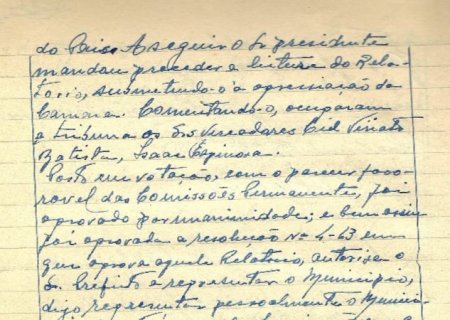 do Paiso A seguir O Sr presidente
mandou proceder a leitura do Rela-
torio, submetendo-o a apreciação da
Camara. Comentando-o, ocuparam
a tribuna os Srs Vereadores Cid
Batista, Isaac Espinosa.
Posto em votação, com o parecer favo-
ravel das Comissões Permanentes, foi
aprovado por unanimidade; e bem assim
foi aprovada a resolução Nº 4-63 em
que aprova aquele Relatorio, autorisa o
Sr. Prefeito a representar o Municipio,
digo, representar pessoalmente o Munici-